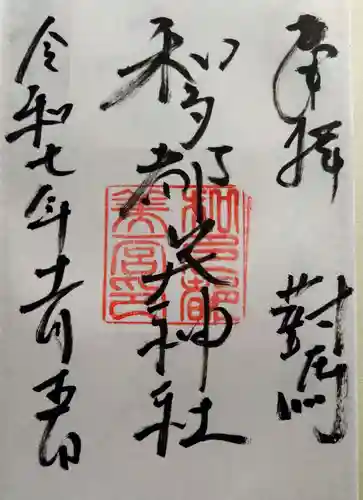 奉拝 對馬
和多都美神社
令和七年十一月五日
和多都
美宮印